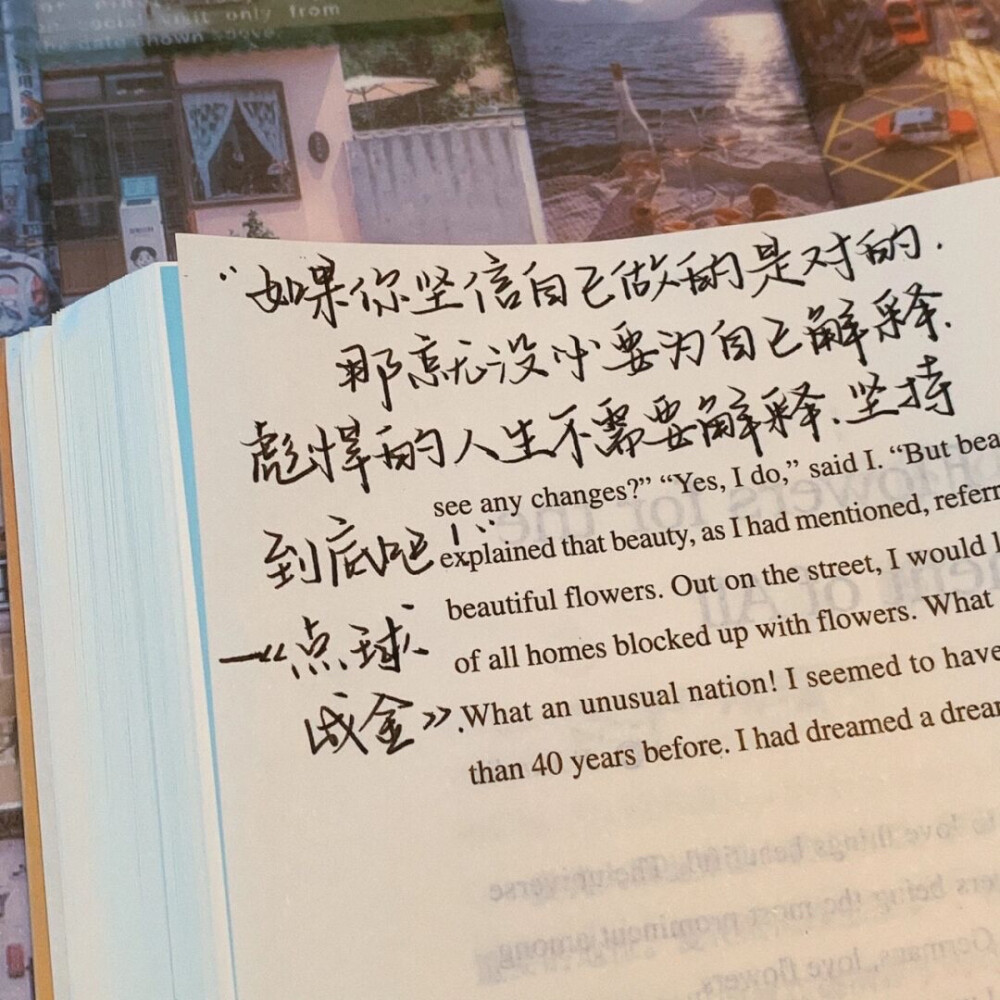 social visit only from
the date shown above.
“如果你坚信自己做的是对的.
那就没必要为自己解释.
彪悍的人生不需要解释.坚持
see any changes?” “Yes, I do,” said I. “But bea
到底吧!”
explained that beauty, as I had mentioned, referr
beautiful flowers. Out on the street, I would l
—《点球
of all homes blocked up with flowers. What
成金》.
What an unusual nation! I seemed to have
than 40 years before. I had dreamed a drea